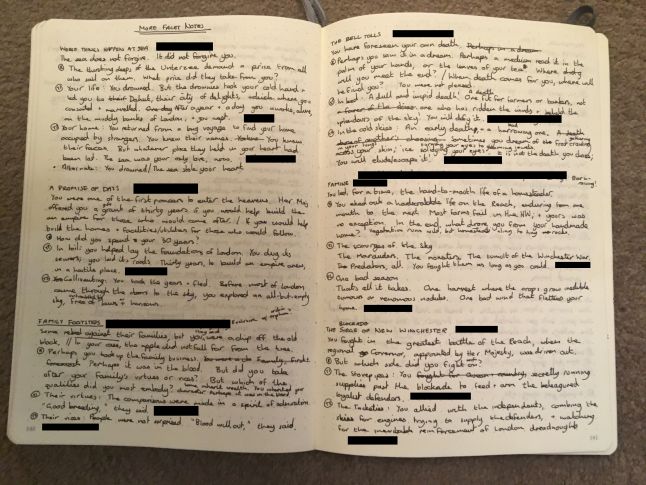 MORE FACET NOTES
WORSE THINGS HAPPEN AT SEA
The sea does not forgive. It did not forgive you.
The thirsting deeps of the Unterzee demand a price from all
who sail on them. What price did they take from you?
Your life: You drowned. But the drownies took your old hand &
led you to their Palace, their city of delights, where you
cavorted & revelled. a year & a day you awoke, alone,
on the muddy banks of London, & you wept.
Dor home: You returned from a long voyage to find your home
occupied by strangers. You knew their names. You knew
their faces. But whatever place they held in your heart had
been lost. The sea was your only love, now.
Alternate: You drowned/The sea stole your heart
A PROMISE OF DAYS
You were one of the first pioneers to enter the heavens. Her Maj
offered you a grant of thirty years if you would help build
an empire for those who would come after. / If you would help
build the homes & facilities/churches for those who would follow.
How did you spend your 30 years?
In toil: you helped lay the foundations of London. You dug its
sewers; you laid its roads. Thirty years, to build an empire anew,
in a hostile place.
You took the years & fled. Before most of London
came through the doors to the sky, you explored an all-but-empty
sky, free of laws & honours.
FAMILY FOOTSTEPS
Some rebel against their families, but you were a chip off the old
block. // In your case, the apple did not fall far from the tree.
Perhaps you took up the family business. Family, first.
Perhaps it was in the blood. But did you take
after your family's virtues or vices? But which of the
qualities did you most embody?
Their virtues: The companions were made in a spirit of admiration.
"Good breeding," they said.
Their vices: People were not surprised. "Blood will out," they said.
THE BELL TOLLS
You have foreseen your own death. Perhaps in a dream
Perhaps you saw it in a dream. Perhaps a medium read it in the
palm of your hands, or the leaves of your tea. Where
will you meet the end? / When death comes for you, where will
he find you? You were not pleased.
In bed: 'A dull and stupid death.' A death fit for farmers or bankers, not
one who has ridden the winds & beheld the
splendours of the sky. You will defy it.
In the cold skies: An early death, & a harrowing one.
Sometimes you dream of the frost crawling
across your skin; ice
You will elude/escape it!
FAMINE
You led, for a time, the hand-to-mouth life of a homesteader.
You eked out a life on the Reach, enduring from one
month to the next. Most farms fail in the NW, & yours was
no exception. In the end, what drove you from your handmade
home?
The scourges of the sky
The Marauders. The monsters. The tumult of the Winchester War.
Predators, all. You fought them as long as you could.
One bad season
That's all it takes. One harvest where the crops grow inedible
tumours or venomous nodules. One bad wind that flattens your
home.
BLOCKADE
THE SIEGE OF NEW WINCHESTER
You fought in the greatest battle of the Reach, when the
regional Governor, appointed by Her Majesty, was driven out.
But which side did you fight on?
The Stovepipes: You secretly running
supplies past the blockade to feed & arm the beleaguered
loyalist defenders.
The Tacketies: You allied with the independents, combing the
skies for engines trying to supply the defenders, & watching
for the inevitable reinforcement of London dreadnoughts